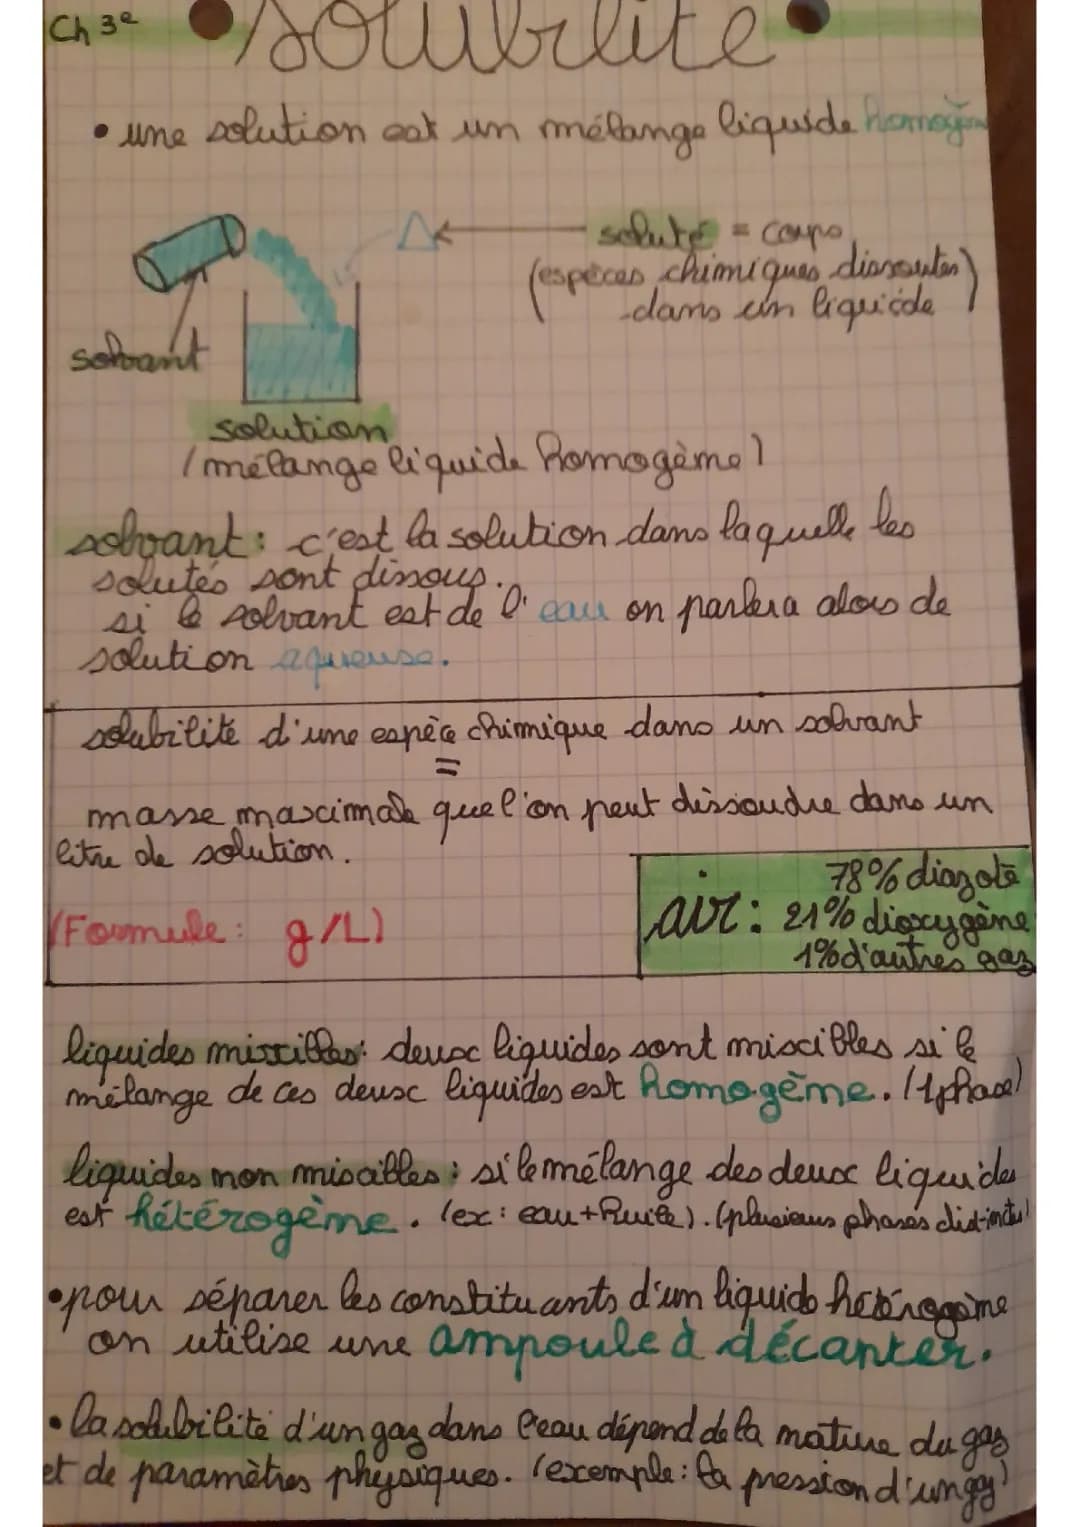 Ch 3e
solubilité
• une solution est un mélange liquide homogène
soluté = corps
(espèces chimiques dissoutes)
dans un liquide
solvant
solution
(mélange liquide homogène)
solvant: c'est la solution dans laquelle les
solutés sont dissous.
si le solvant est de l'eau on parlera alors de
solution aqueuse.
solubilité d'une espèce chimique dans un solvant
=
masse maximale que l'on peut dissoudre dans un
litre de solution.
(Formule: g/L)
air: 78% diazote
21% dioxygène
1% d'autres gaz
liquides miscibles: deux liquides sont miscibles si le
mélange de ces deux liquides est homogène. (1 phase)
liquides non miscibles: si le mélange des deux liquides
est hétérogène. (ex: eau+huile). (plusieurs phases distinctes)
• pour séparer les constituants d'un liquide hétérogène
on utilise une ampoule à décanter.
• la solubilité d'un gaz dans l'eau dépend de la nature du gaz
et de paramètres physiques. (exemple: la pression d'un gaz)